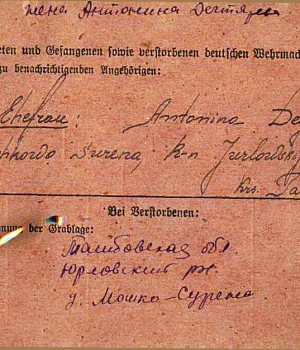 жена Антонина Дегтяр
eten und Gefangenen sowie verstorbenen deutschen Wehrmac
zu benachrichtigenden Angehörigen:
Ehefrau: Antonina De
Surena, k-n Jurlowski
Krs. Ta
Bei Verstorbenen:
nung der Grablage:
Тамбовская обл
Юрловский рн.
д. Мошко-Сурена